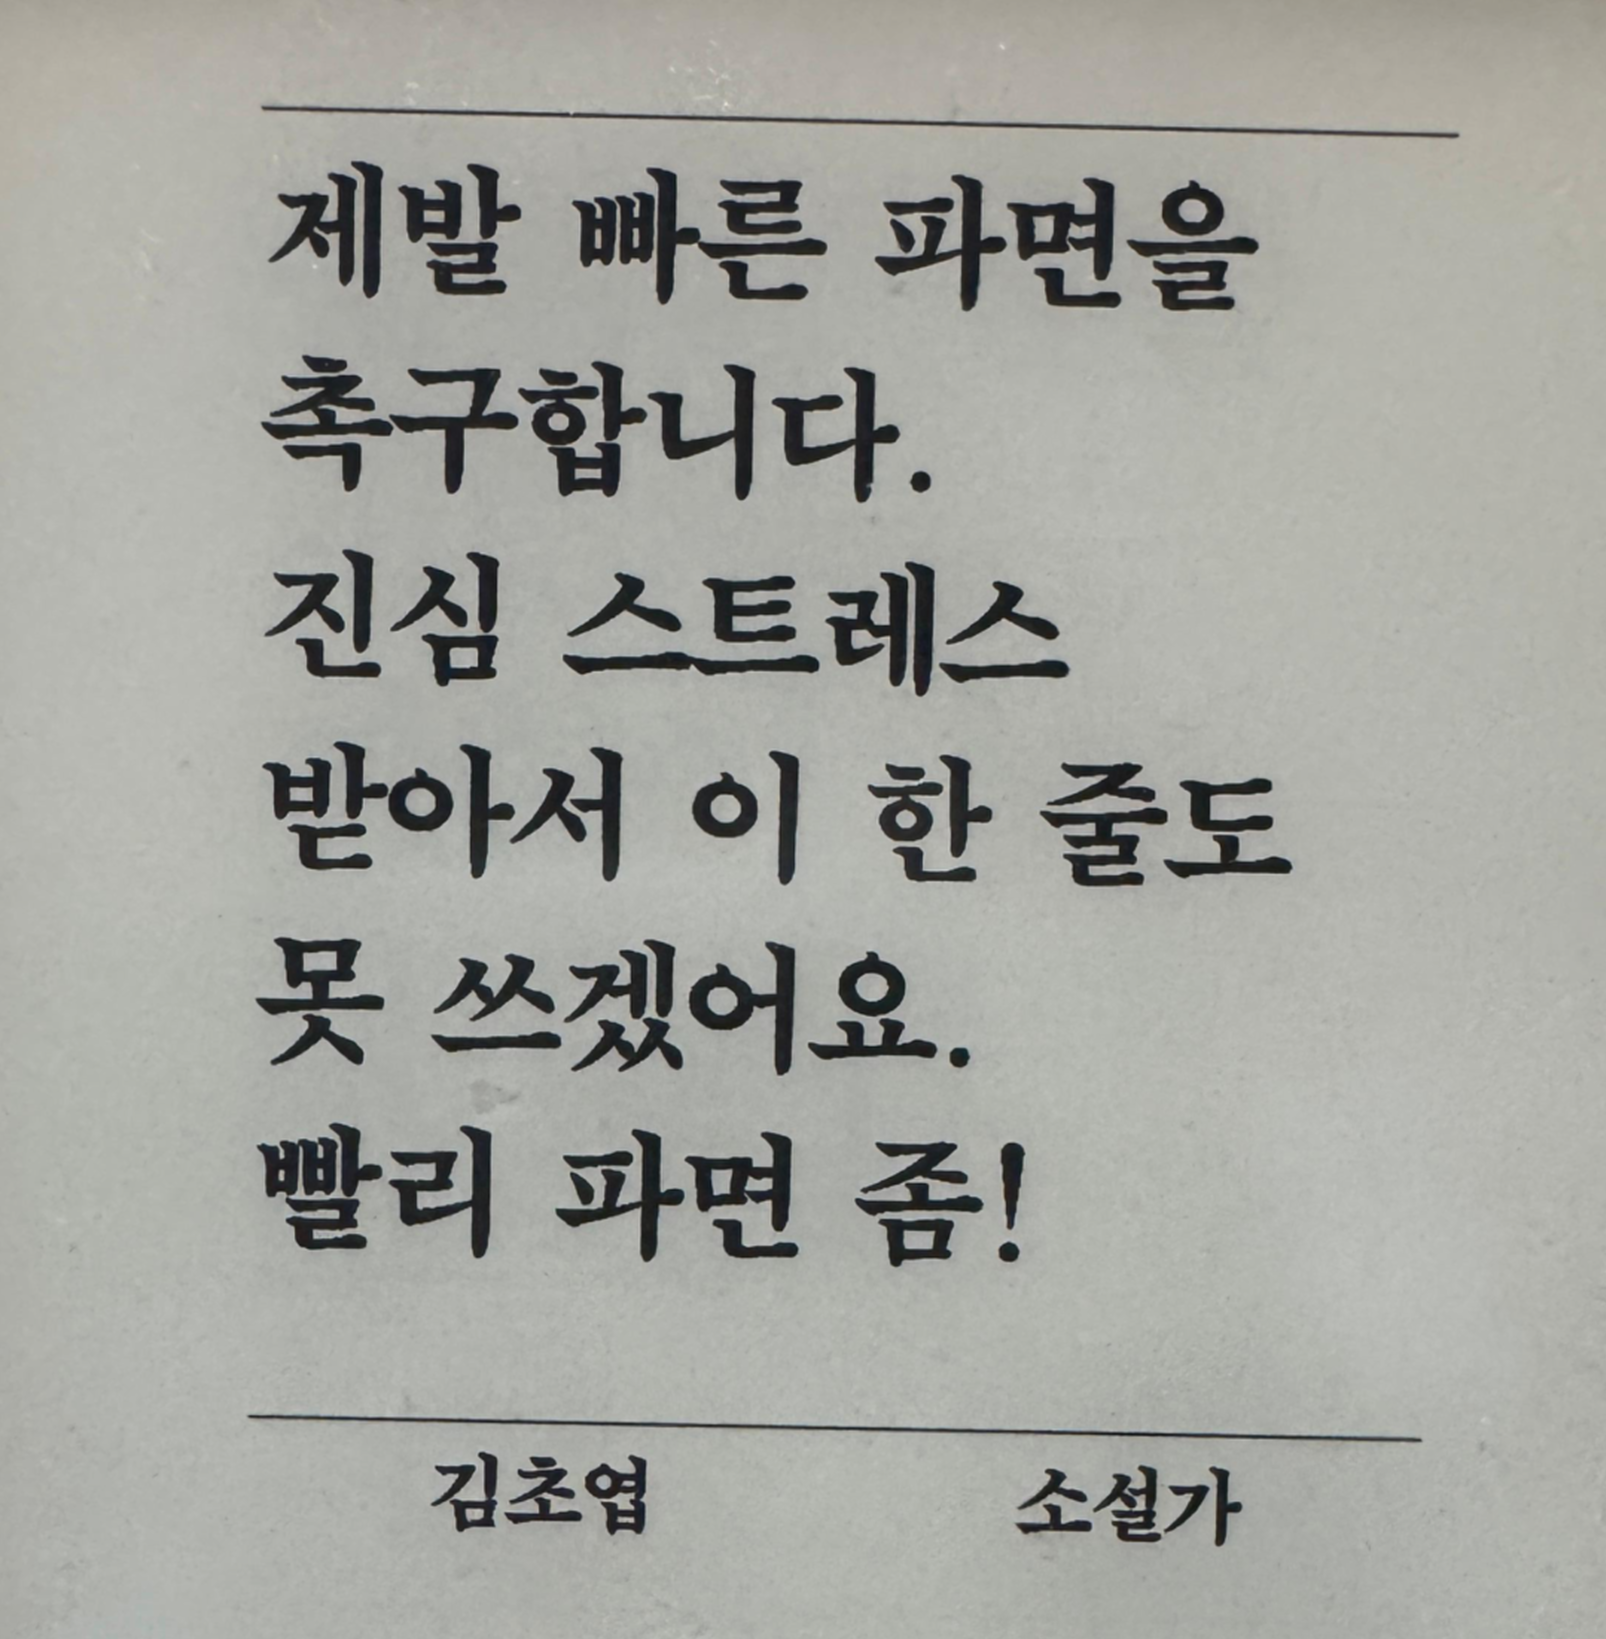 제발 빠른 파면을
촉구합니다.
진심 스트레스
받아서 이 한 줄도
못 쓰겠어요.
빨리 파면 좀!
김초엽 소설가